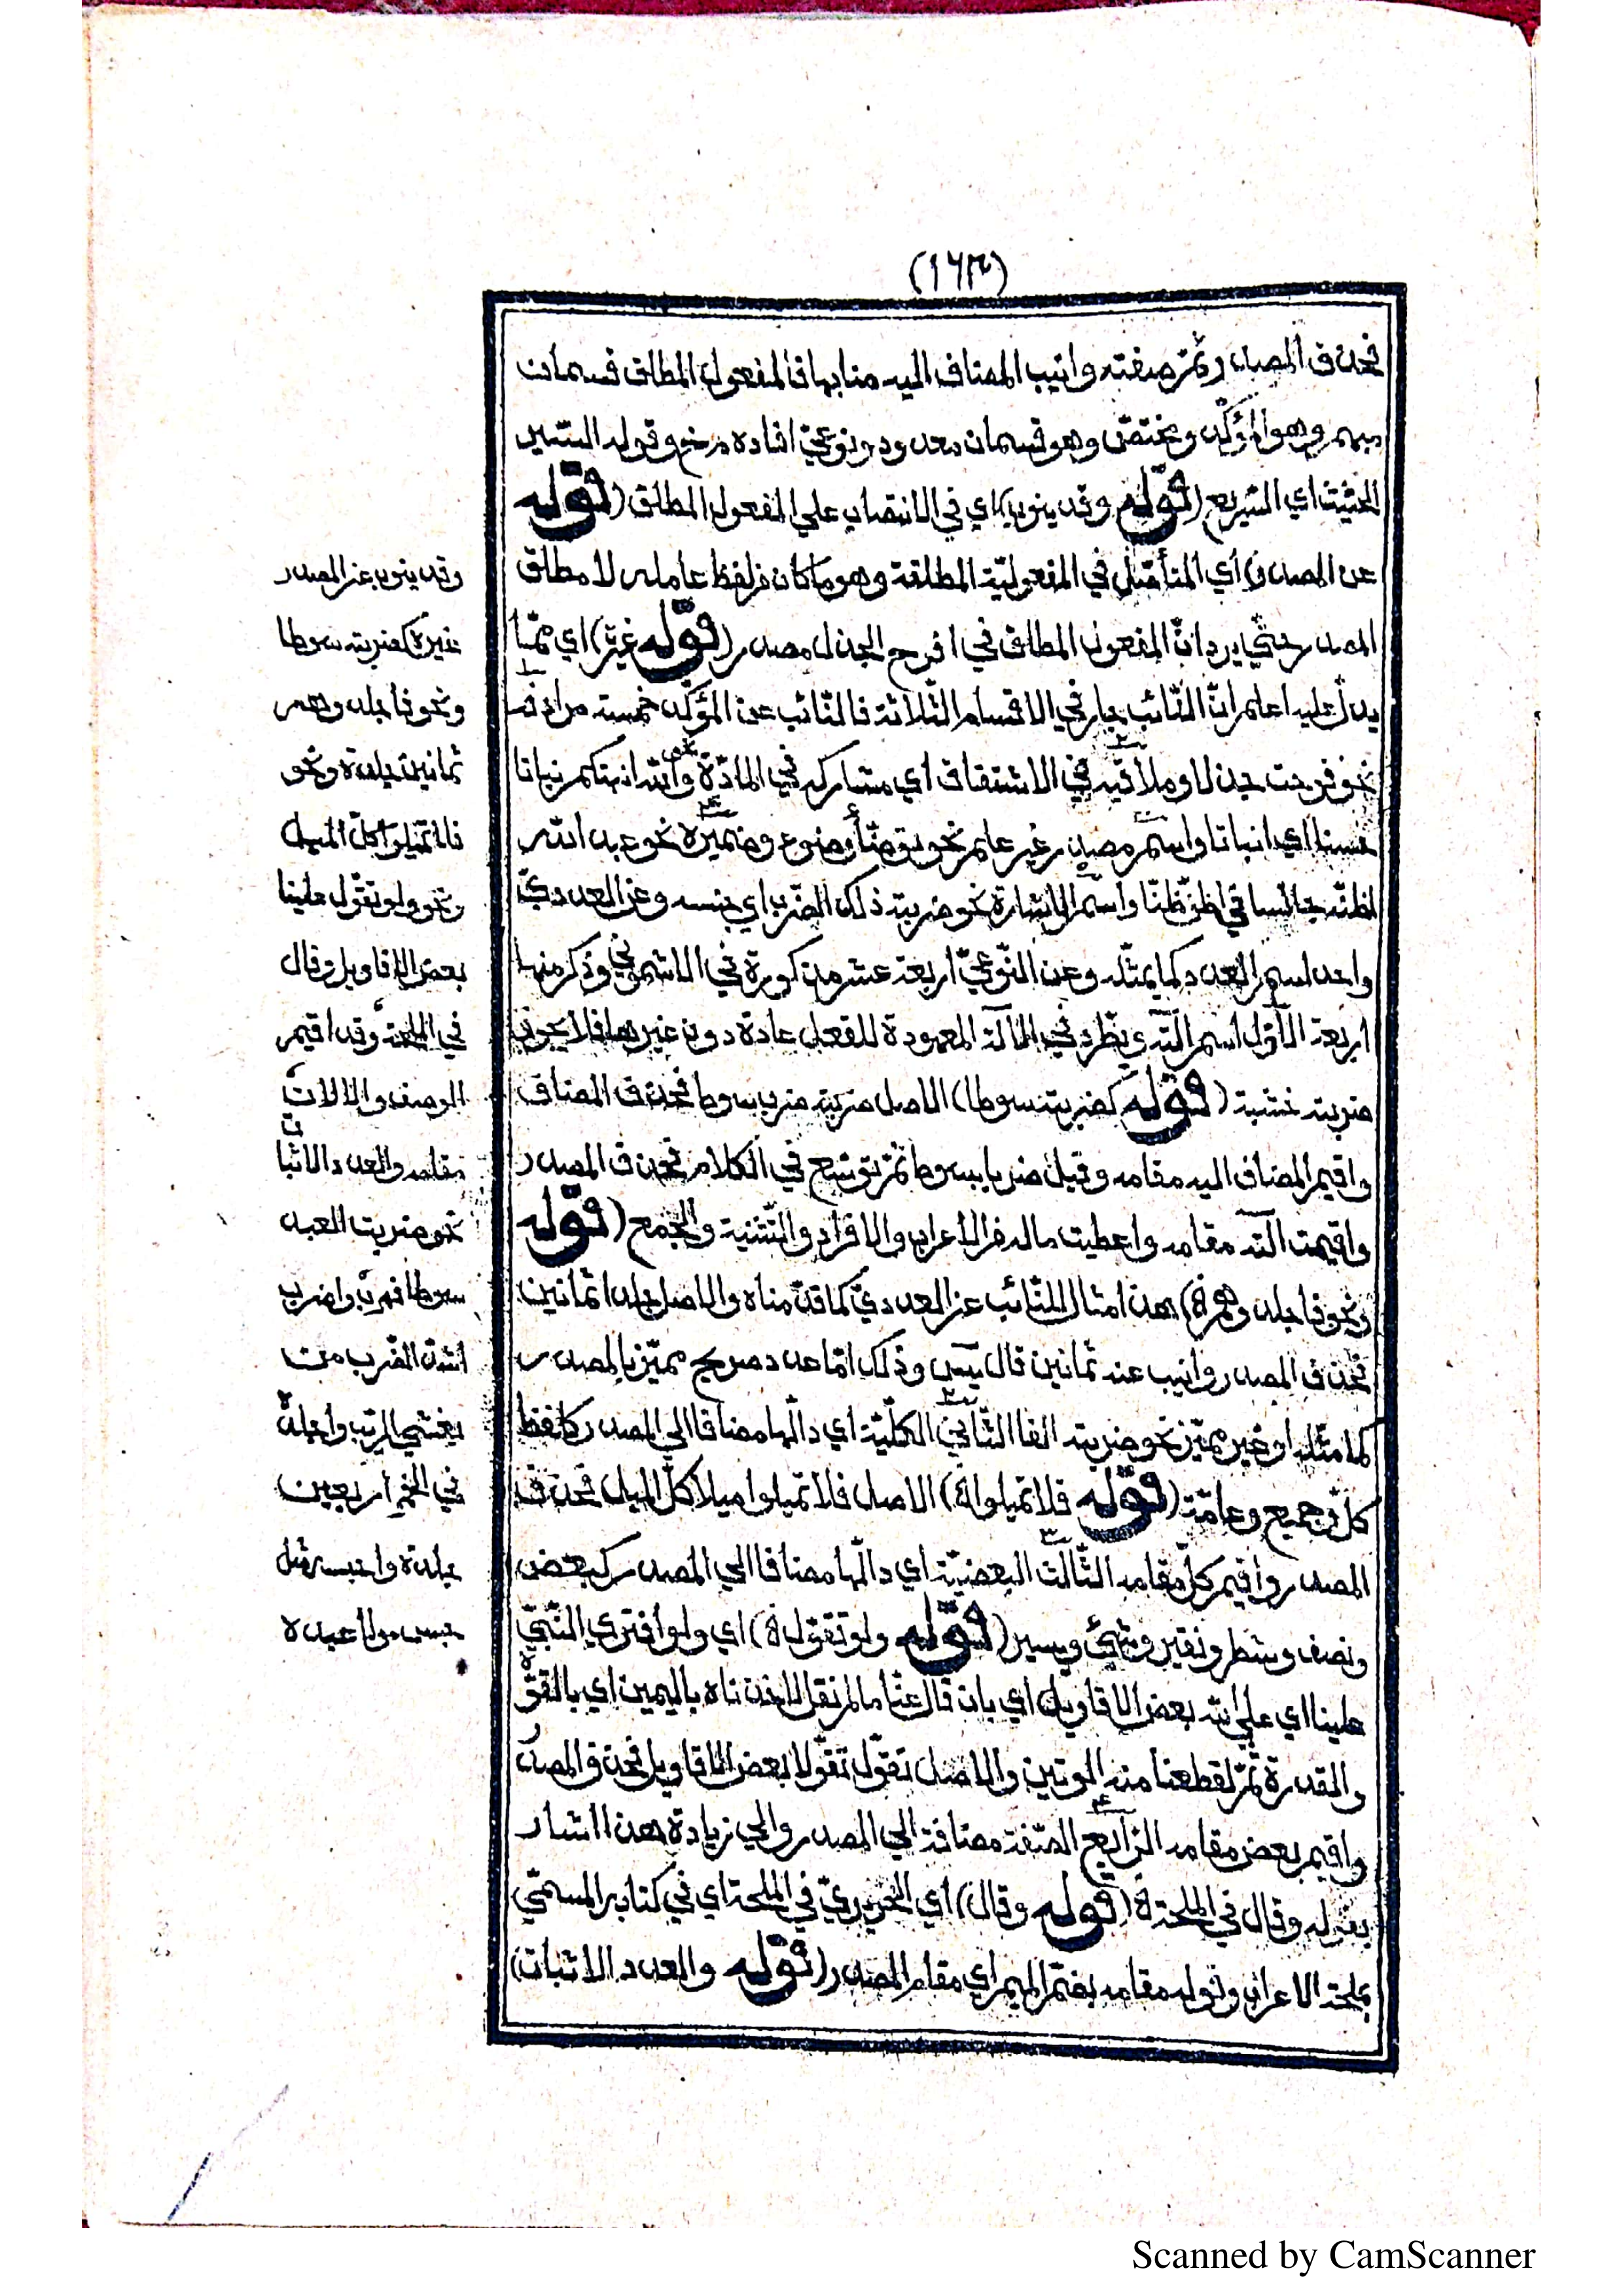 (١٦٣)
فحذف المصدر ثمّ صفته وانيب المضاف اليه منابها فالمفعول المطلق قسمان
مبهم وهو المؤكّد ومختصّ وهو قسمان معدود ونوعيّ افاده مرخ وقوله السّير
الحثيث اي السّريع (قوله وقد ينوب) اي في الانتصاب علي المفعول المطلق (قوله
عن المصدر) اي المتأصّل في المفعوليّة المطلقة وهو ما كان من لفظ عامله لا مطلق
المصدر حتّي يرد انّ المفعول المطلق في افرح الجذل مصدر (قوله غيره) اي ممّا
يدلّ عليه اعلم انّ النّائب جار في الاقسام الثّلاثة فالنّائب عن المؤكّد خمسة مرادفه
نحو فرحت جذلا وملاقيه في الاشتقاق اي مشاركه في المادّة نحو والله انبتكم نباتا
حسنا اي انباتا واسم مصدر غير علم نحو توضّأ وضوء وضميره نحو عبد الله
اظنّه جالسا اي اظنّ ظنّا واسم الاشارة نحو ضربته ذلك الضّرب اي جنسه وعن العدديّ
واحد اسم العدد كما يمثّله وعن النّوعيّ اربعة عشر مذكورة في الاشموني وذكر منها
اربعة الاوّل اسم آلته ويطّرد في الآلة المعهودة للفعل عادة دون غيرها فلا يجوز
ضربته خشبة (قوله كضربته سوطا) الاصل ضربته ضرب سوط فحذف المضاف
واقيم المضاف اليه مقامه وقيل ضربا بسوط ثمّ توسّع في الكلام فحذف المصدر
واقيمت آلته مقامه واعطيت ماله من الاعراب والافراد والتّثنية والجمع (قوله
ونحو فاجلدوهم الخ) هذا مثال للنّائب عن العدديّ كما قدّمناه والاصل جلدا ثمانين
فحذف المصدر وانيب عنه ثمانين قال يس وذلك امّا عدد صريح مميّز بالمصدر
كما مثّله او غير مميّز نحو ضربته الفا الثّاني الكلّيّة اي دالّها مضافا الي المصدر كلفظ
كلّ وجميع وعامّة (قوله فلا تميلوا الخ) الاصل فلا تميلوا ميلا كلّ الميل فحذف
المصدر واقيم كلّ مقامه الثّالث البعضيّة اي دالّها مضافا الي المصدر كبعض
ونصف وشطر ونقير وشيئ ويسير (قوله ولو تقوّل الخ) اي ولو افتري النّبيّ
علينا اي علي الله بعض الاقاويل اي بان قال عنّا ما لم نقل لاخذناه باليمين اي بالقوّة
والمقدرة ثمّ لقطعنا منه الوتين والاصل تقوّل تقوّلا بعض الاقاويل فحذف المصدر
واقيم بعض مقامه الرّابع الصّفة مضافة الي المصدر والي زيادة هذا اشار
بقوله وقال في الملحة الخ (قوله وقال) اي الحريريّ في الملحة اي في كتابه المسمّي
بملحة الاعراب وقوله مقامه بضمّ الميم اي مقام المصدر (قوله والعدد الاثبات)
وقد ينوب عن المصدر
غيره كضربته سوطا
ونحو فاجلدوهم
ثمانين جلدة ونحو
فلا تميلوا كلّ الميل
ونحو ولو تقوّل علينا
بعض الاقاويل وقال
في الملحة وقد اقيم
الوصف والالات
مقامه والعدد الاثبات
نحو ضربت العبد
سوطا فهرب واضرب
اشدّ الضّرب من
يغشي الرّيب واجلده
في الخمر اربعين
جلدة واحبسه مثل
حبس مولا عبده
Scanned by CamScanner